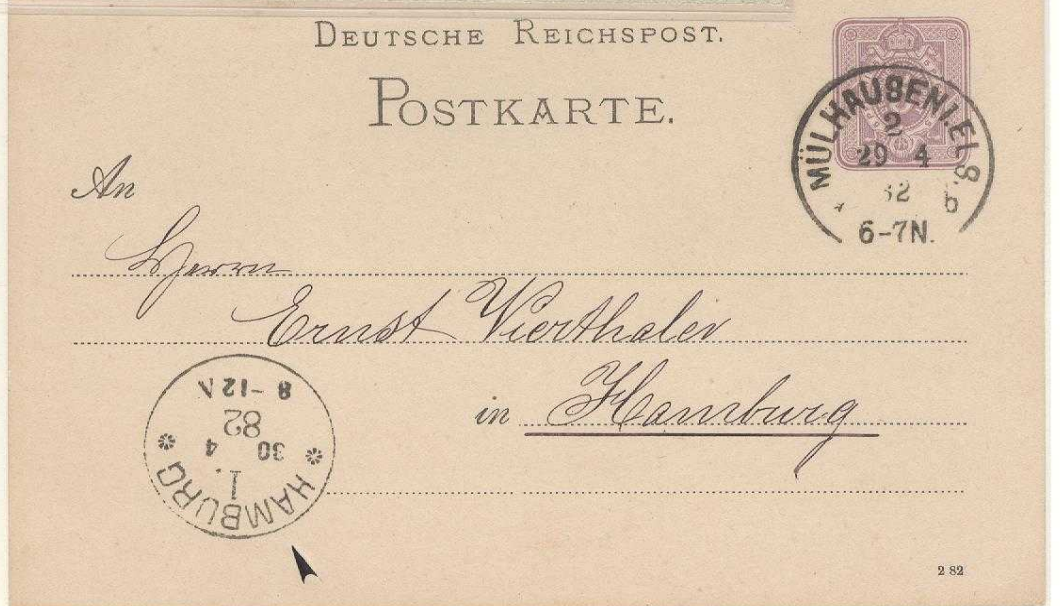 DEUTSCHE REICHSPOST.
POSTKARTE.
MÜLHAUSEN I. ELS.
2
29 4
82
b
6-7N.
An
Herrn
Ernst Vierthaler
in Hamburg
HAMBURG
1.
30 4
82
8-12N
2 82